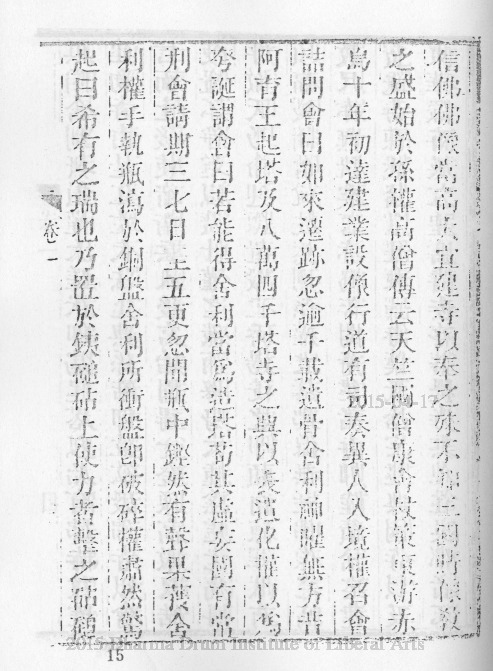 信佛佛像當高大宜建寺以奉之殊不知三國時像教
之盛始於孫權高僧傳云天竺國僧康會杖策東游赤
烏十年初達建業設像行道有司奏異人入境權召會
詰問會曰如來遷跡忽逾千載遺骨舍利神曜無方昔
阿育王起塔及八萬四千塔寺之興以表遺化權以為
夸誕謂會曰若能得舍利當為造塔苟其虛妄國有常
刑會請期三七日至五更忽聞瓶中鏗然有聲果獲舍
利權手執瓶瀉於銅盤舍利所衝盤卽破碎權肅然驚
起曰希有之瑞也乃置於鐵磓砧上使力者擊之砧磓
卷一
15
2015 Dharma Drum Institute of Liberal Arts